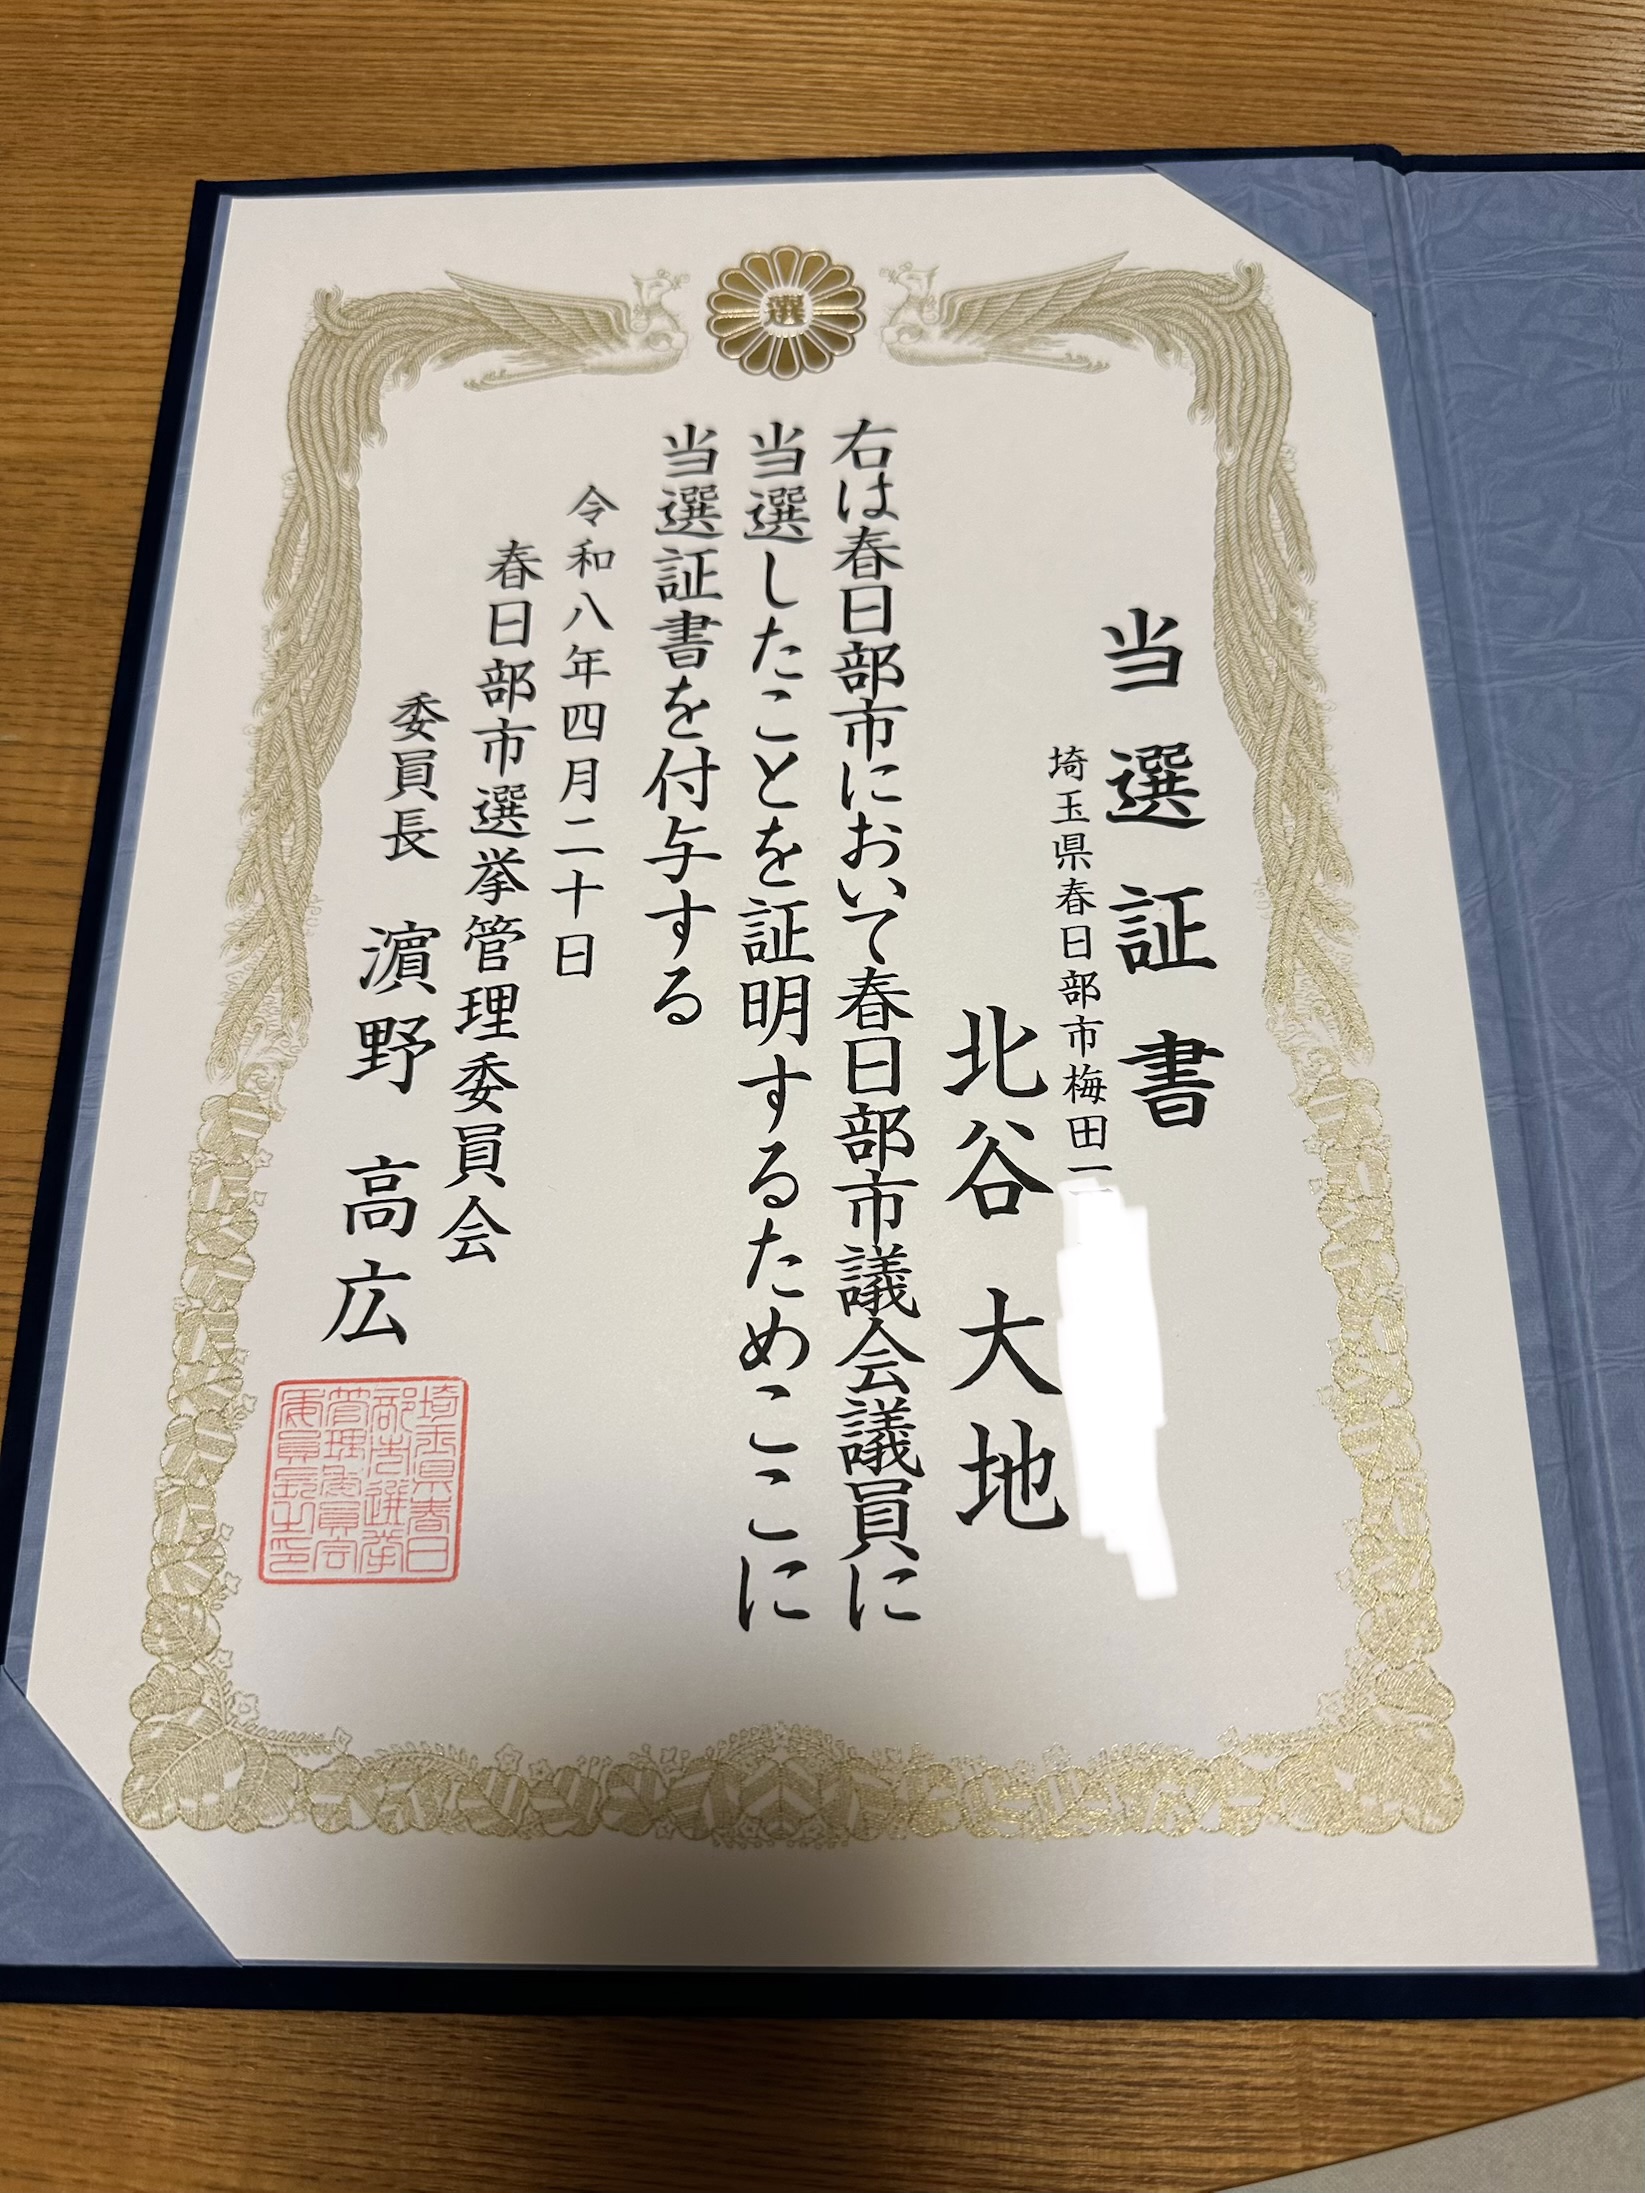 選
当選証書
埼玉県春日部市梅田一
北谷大地
右は春日部市において春日部市議会議員に
当選したことを証明するためここに
当選証書を付与する
令和八年四月二十日
春日部市選挙管理委員会
委員長 濵野高広
埼玉県春日
部市選挙
管理委員会
委員長之印